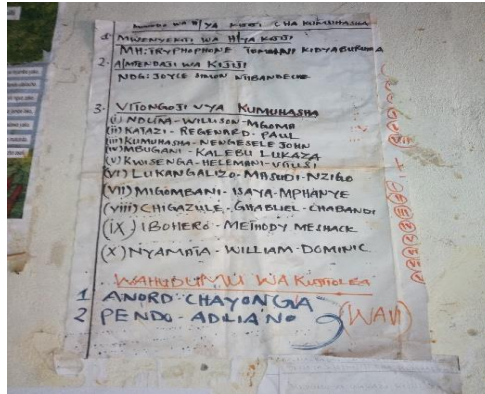 MUUNDO WA H/YA KIJIJI CHA KUMUHASHA
1. MWENYEKITI WA H/YA KIJIJI
MH: TRYPHOPHONE TOMANI KIDYABURUMA
2. AMTENDAJI WA KIJIJI
NDG: JOYCE SIMON NTIBANDECHE
3. VITONGOJI VYA KUMUHASHA
(i) NDUTA - WILLISON - MGOMA
(ii) KATAZI - REGENARD - PAUL
(iii) KUMUHASHA - NENGESELE JOHN
(iv) MBUGANI - KALEBU LUKAZA
(V) KWISENGA - HELEMANI - VYIUSI
(VI) LUKANGALIZO - MASUDI - NZIGO
(VII) MIGOMBANI - ISAYA - MPHANYE
(viii) CHIGAZULE - GHABLIEL - CHABANDI
(IX) IBOHERO - METHODY MESHACK
(X) NYAMATA - WILLIAM - DOMINIC
WAHUDUMU WA KUJITOLEA
1 ANORD: CHAYONGA
2 PENDO - ADLIANO
(WAVI)